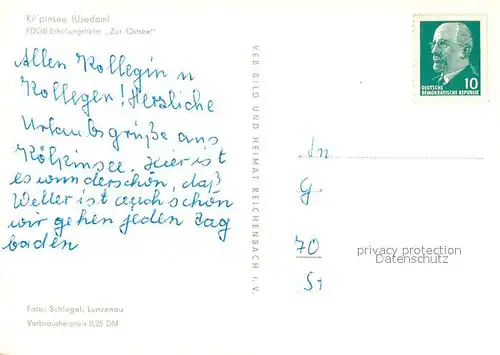 Kö pinsee (Usedom)
FDGB-Erholungsheim „Zur Ostsee"
Allen Kollegin u
Kollegen! Herzliche
Urlaubsgrüße aus
Kölpinsee. Hier ist
es wunderschön, daß
Wetter ist auch schön
wir gehen jeden Tag
baden
Foto: Schlegel, Lunzenau
Verbraucherpreis 0,25 DM
VEB BILD UND HEIMAT REICHENBACH I. V.
10
DEUTSCHE
DEMOKRATISCHE REPUBLIK
An
G
70
St
privacy protection
Datenschutz